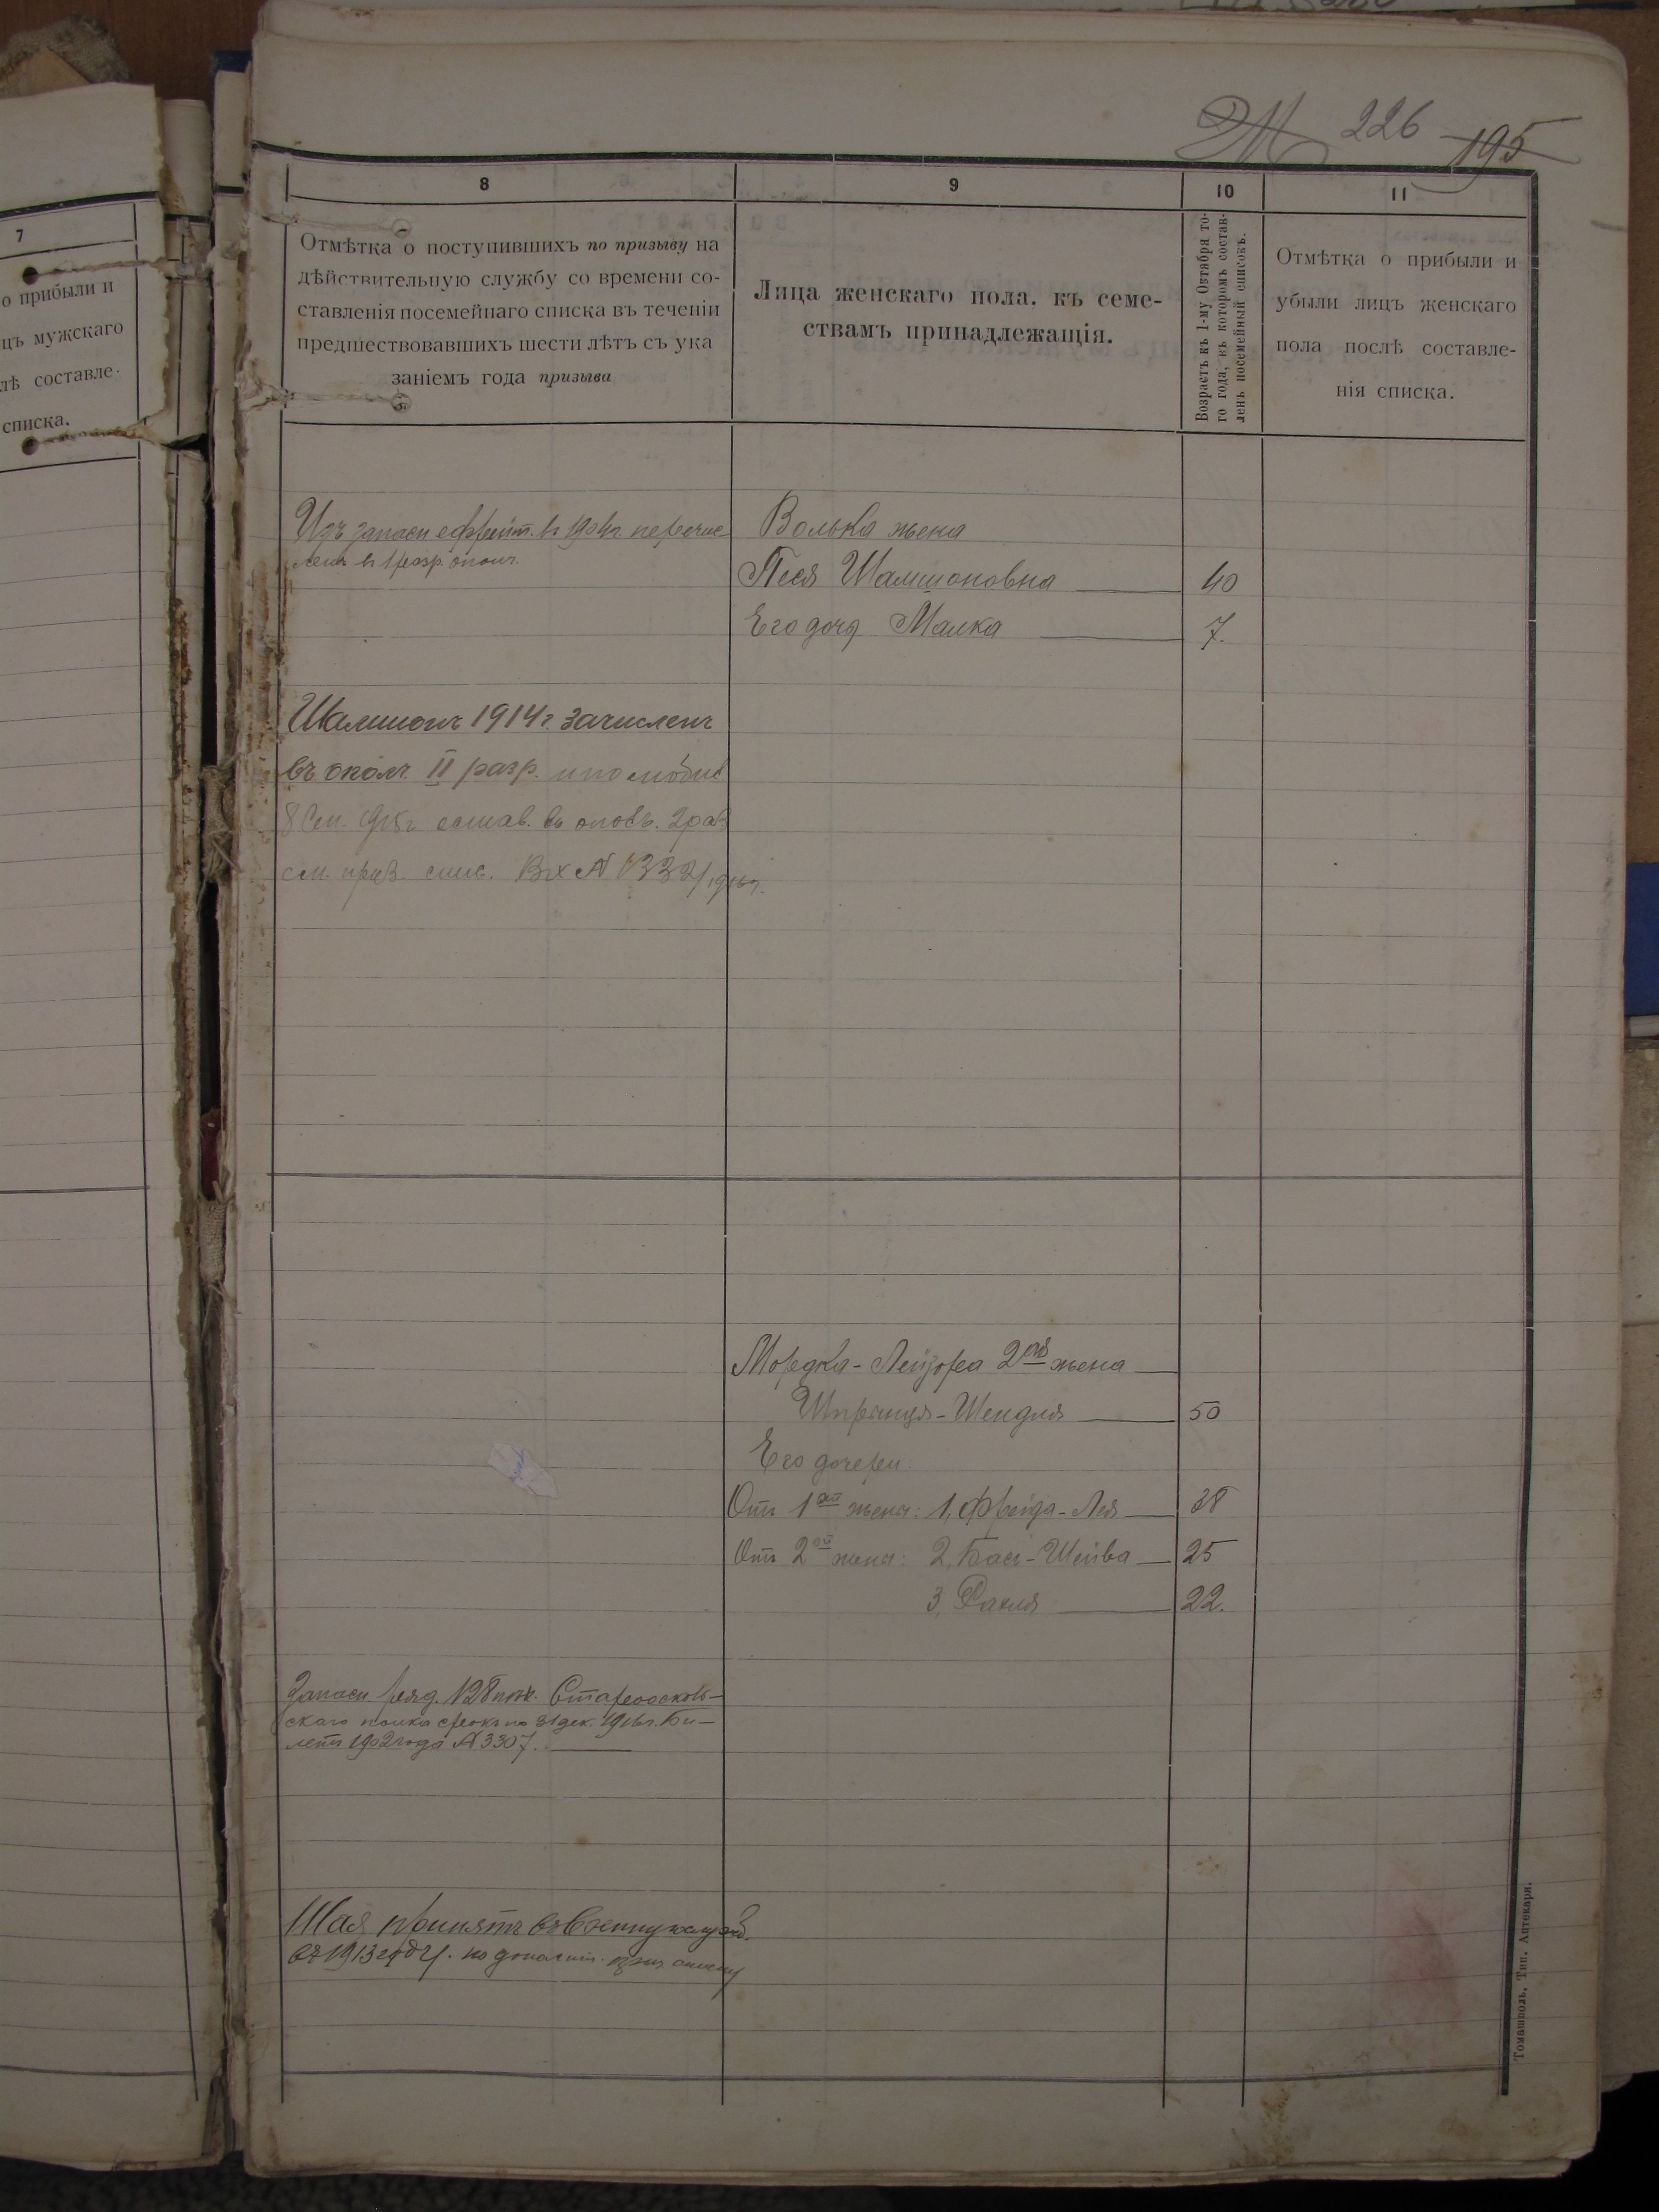 226 195
7
о прибыли и
цъ мужскаго
лѣ составле-
списка.
8
9
10
11
Отмѣтка о поступившихъ по призыву на
дѣйствительную службу со времени со-
ставленія посемейнаго списка въ теченіи
предшествовавшихъ шести лѣтъ съ ука
заніемъ года призыва
Лица женскаго пола. къ семе-
ствамъ принадлежащія.
Возрастъ къ 1-му Октября то-
го года, въ которомъ состав-
ленъ посемейный списокъ.
Отмѣтка о прибыли и
убыли лицъ женскаго
пола послѣ составле-
нія списка.
Изъ запаси ефрейт. въ 1904г. перечис-
ленъ въ 1 разр. ополч.
Волька жена
Песя Шамшоновна 40
Его дочь Малка 7.
Шамшонъ 1914г. зачисленъ
въ ополч. II разр. и по мобил
8 Сен. 1915г оставл. въ ополч. 2 раз
см. приз. спис. Вх № 1332/
Мордка-Лейзора 2ая жена
Шпрынця-Шендля 50
Его дочери:
Отъ 1ой жены: 1, Фрейда-Лея 38
Отъ 2ой жены: 2, Бася-Шейва 25
3, Рахля 22.
Запаси ряд. 128 пѣх. Староосколь-
скаго полка срокъ по 31 дек. 1916г. Би-
летъ 1902 года № 3307.
Шая принятъ въ Военную служб.
въ 1913 году. по дополнит. приз списку
Томашполь, Тип. Аптекаря.